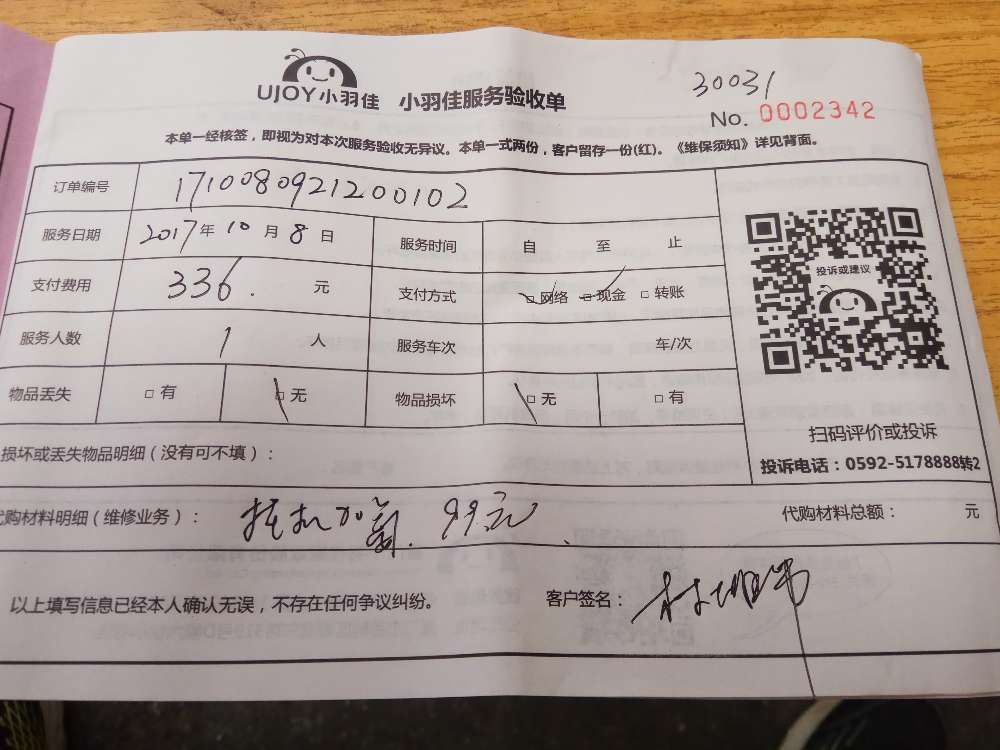 UJOY小羽佳 小羽佳服务验收单
30031
No. 0002342
本单一经核签，即视为对本次服务验收无异议。本单一式两份，客户留存一份(红)。《维保须知》详见背面。
订单编号 171008092120010​2
服务日期 2017 年 10 月 8 日 服务时间 自 至 止
支付费用 336. 元 支付方式 □ 网络 □ 现金 □ 转账
服务人数 1 人 服务车次 车/次
物品丢失 □ 有 □ 无 物品损坏 □ 无 □ 有
投诉或建议
扫码评价或投诉
投诉电话：0592-5178888转2
损坏或丢失物品明细（没有可不填）：
代购材料明细（维修业务）： 加氟. 99元. 代购材料总额： 元
以上填写信息已经本人确认无误，不存在任何争议纠纷。 客户签名：